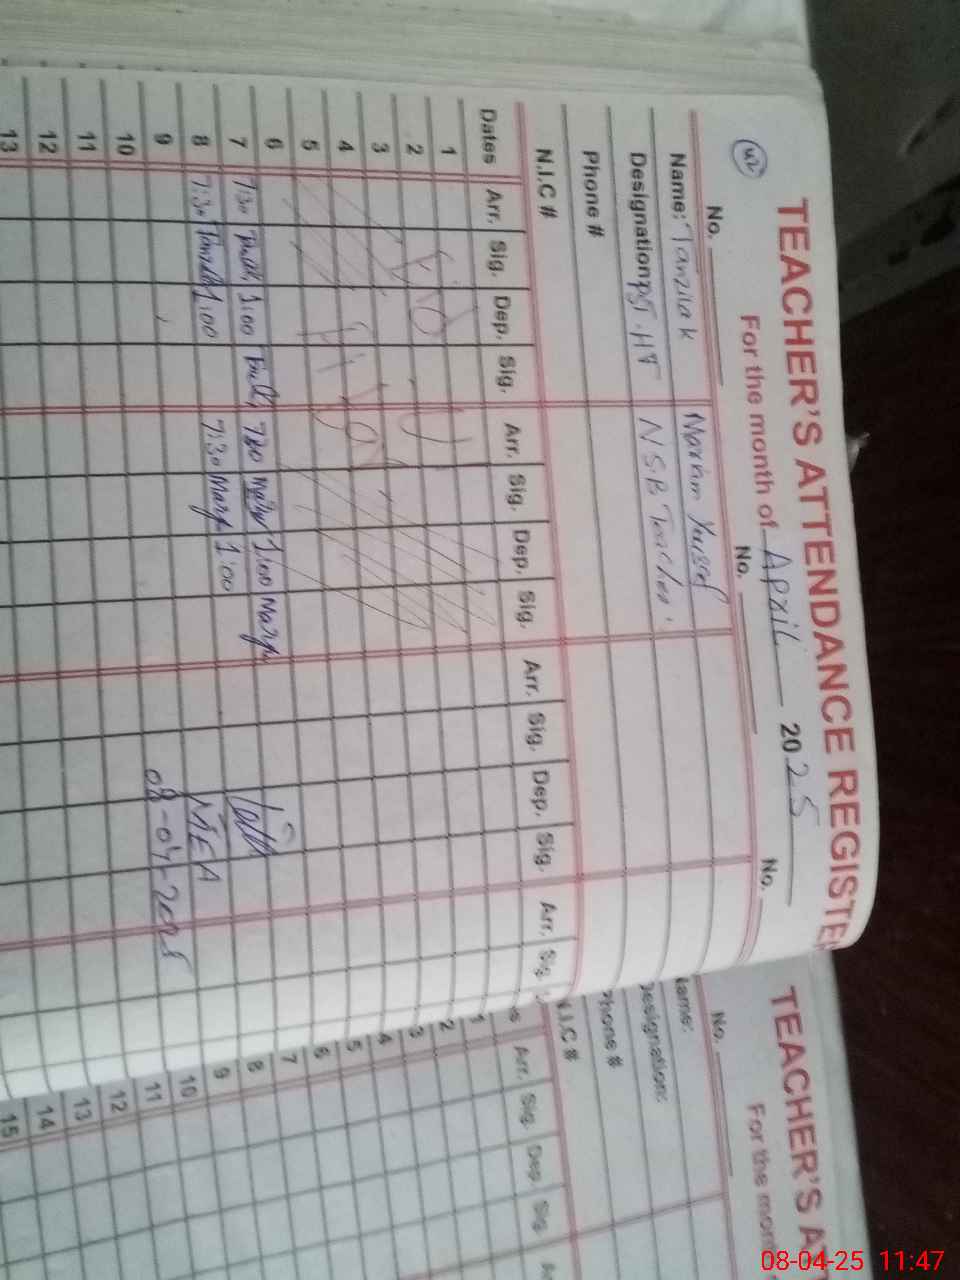 42
TEACHER'S ATTENDANCE REGISTER
For the month of April 2025
No. No. No.
Name: Tanzila k Maryam Yousaf
Designation: PST.HT N.S.B Teacher.
Phone #
N.I.C #
Dates Arr. Sig. Dep. Sig. Arr. Sig. Dep. Sig. Arr. Sig. Dep. Sig. Arr. Sig.
1
2
3
4
5
6
7 7:30 1:00 7:30 Mary 1:00 Mary
8 7:30 Tanzila 1:00 7:30 Mary 1:00
MEA
9
08-04-2025
10
11
12
13
TEACHER'S AT
For the mon
No.
Name:
Designation:
Phone #
N.I.C #
Arr. Sig. Dep. Sig.
1
2
3
4
5
6
7
8
9
10
11
12
13
14
15
08-04-25 11:47